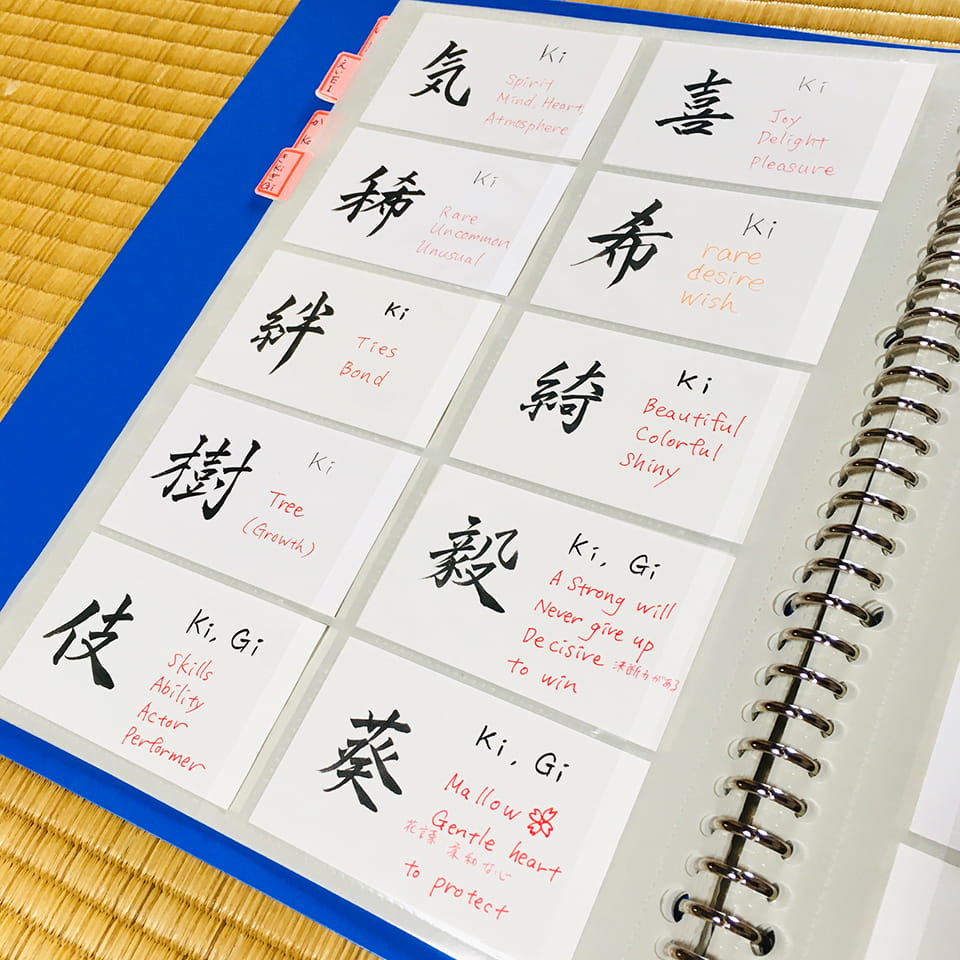 気
Ki
Spirit
Mind, Heart,
Atmosphere
喜
Ki
Joy
Delight
Pleasure
稀
Ki
Rare
Uncommon
Unusual
希
Ki
rare
desire
wish
絆
Ki
Ties
Bond
綺
Ki
Beautiful
Colorful
Shiny
樹
Ki
Tree
(Growth)
毅
Ki, Gi
A Strong will
Never give up
Decisive 決断力がある
to win
伎
Ki, Gi
Skills
Ability
Actor
Performer
葵
Ki, Gi
Mallow
Gentle heart
花言葉 柔和な心
to protect